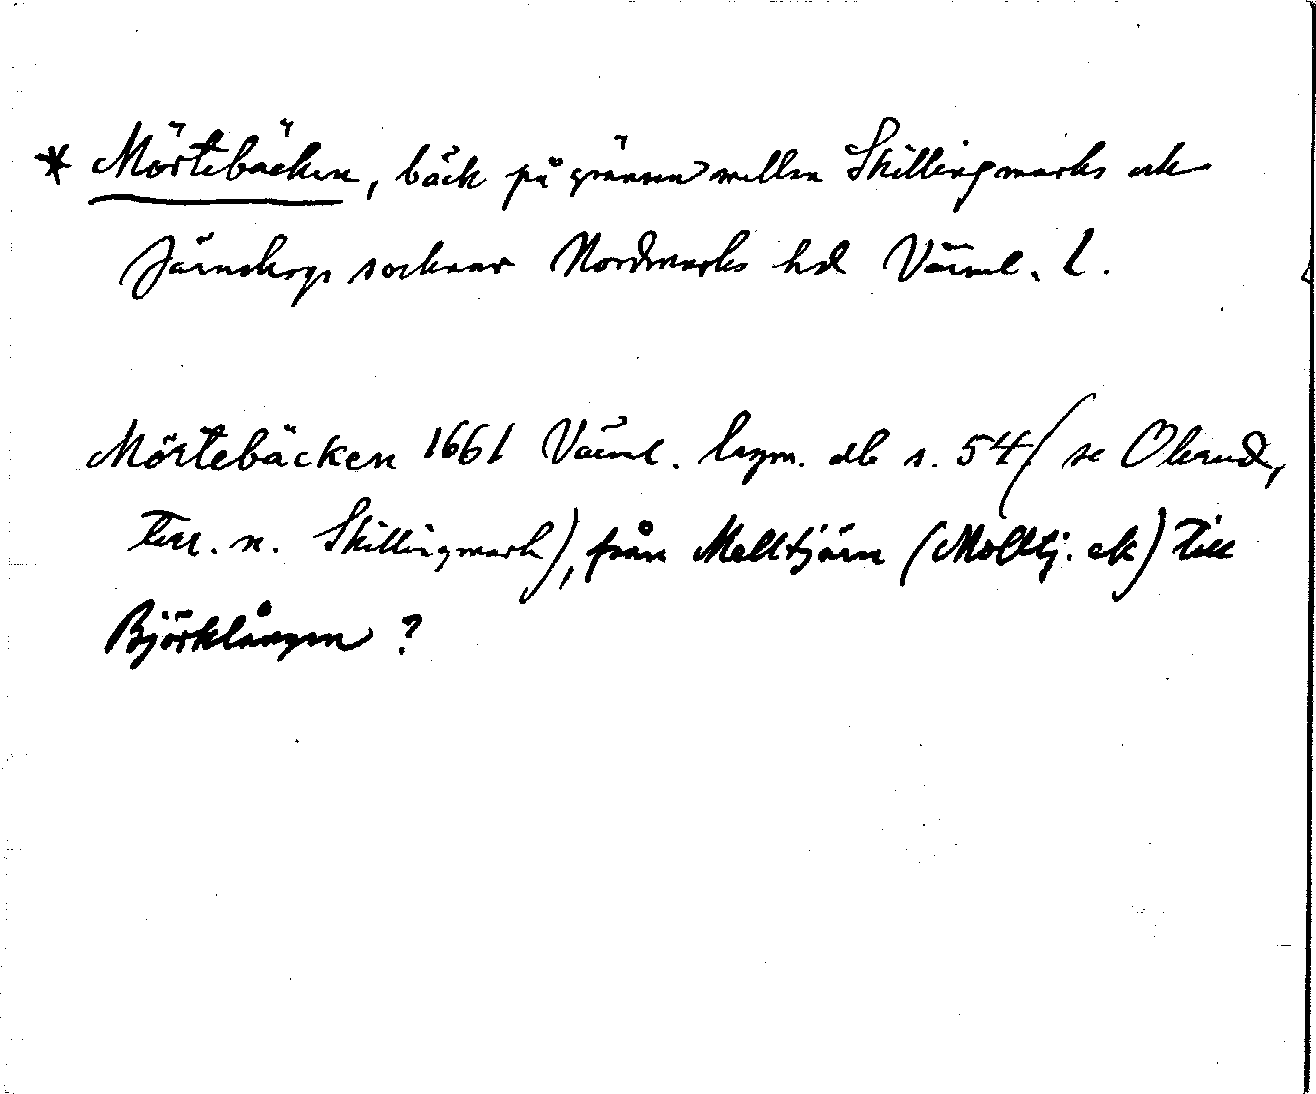 * Mörtebäcken, bäck på gränsen mellan Skillingmarks ok
Järnskogs socknar Nordmarks hd Värml. l.
Mörtebäcken 1661 Värml. lagm. db s. 54 (se Olerud,
terr. n. Skillingmark), från Melltjärn (Mölltj. ek) till
Björklången ?